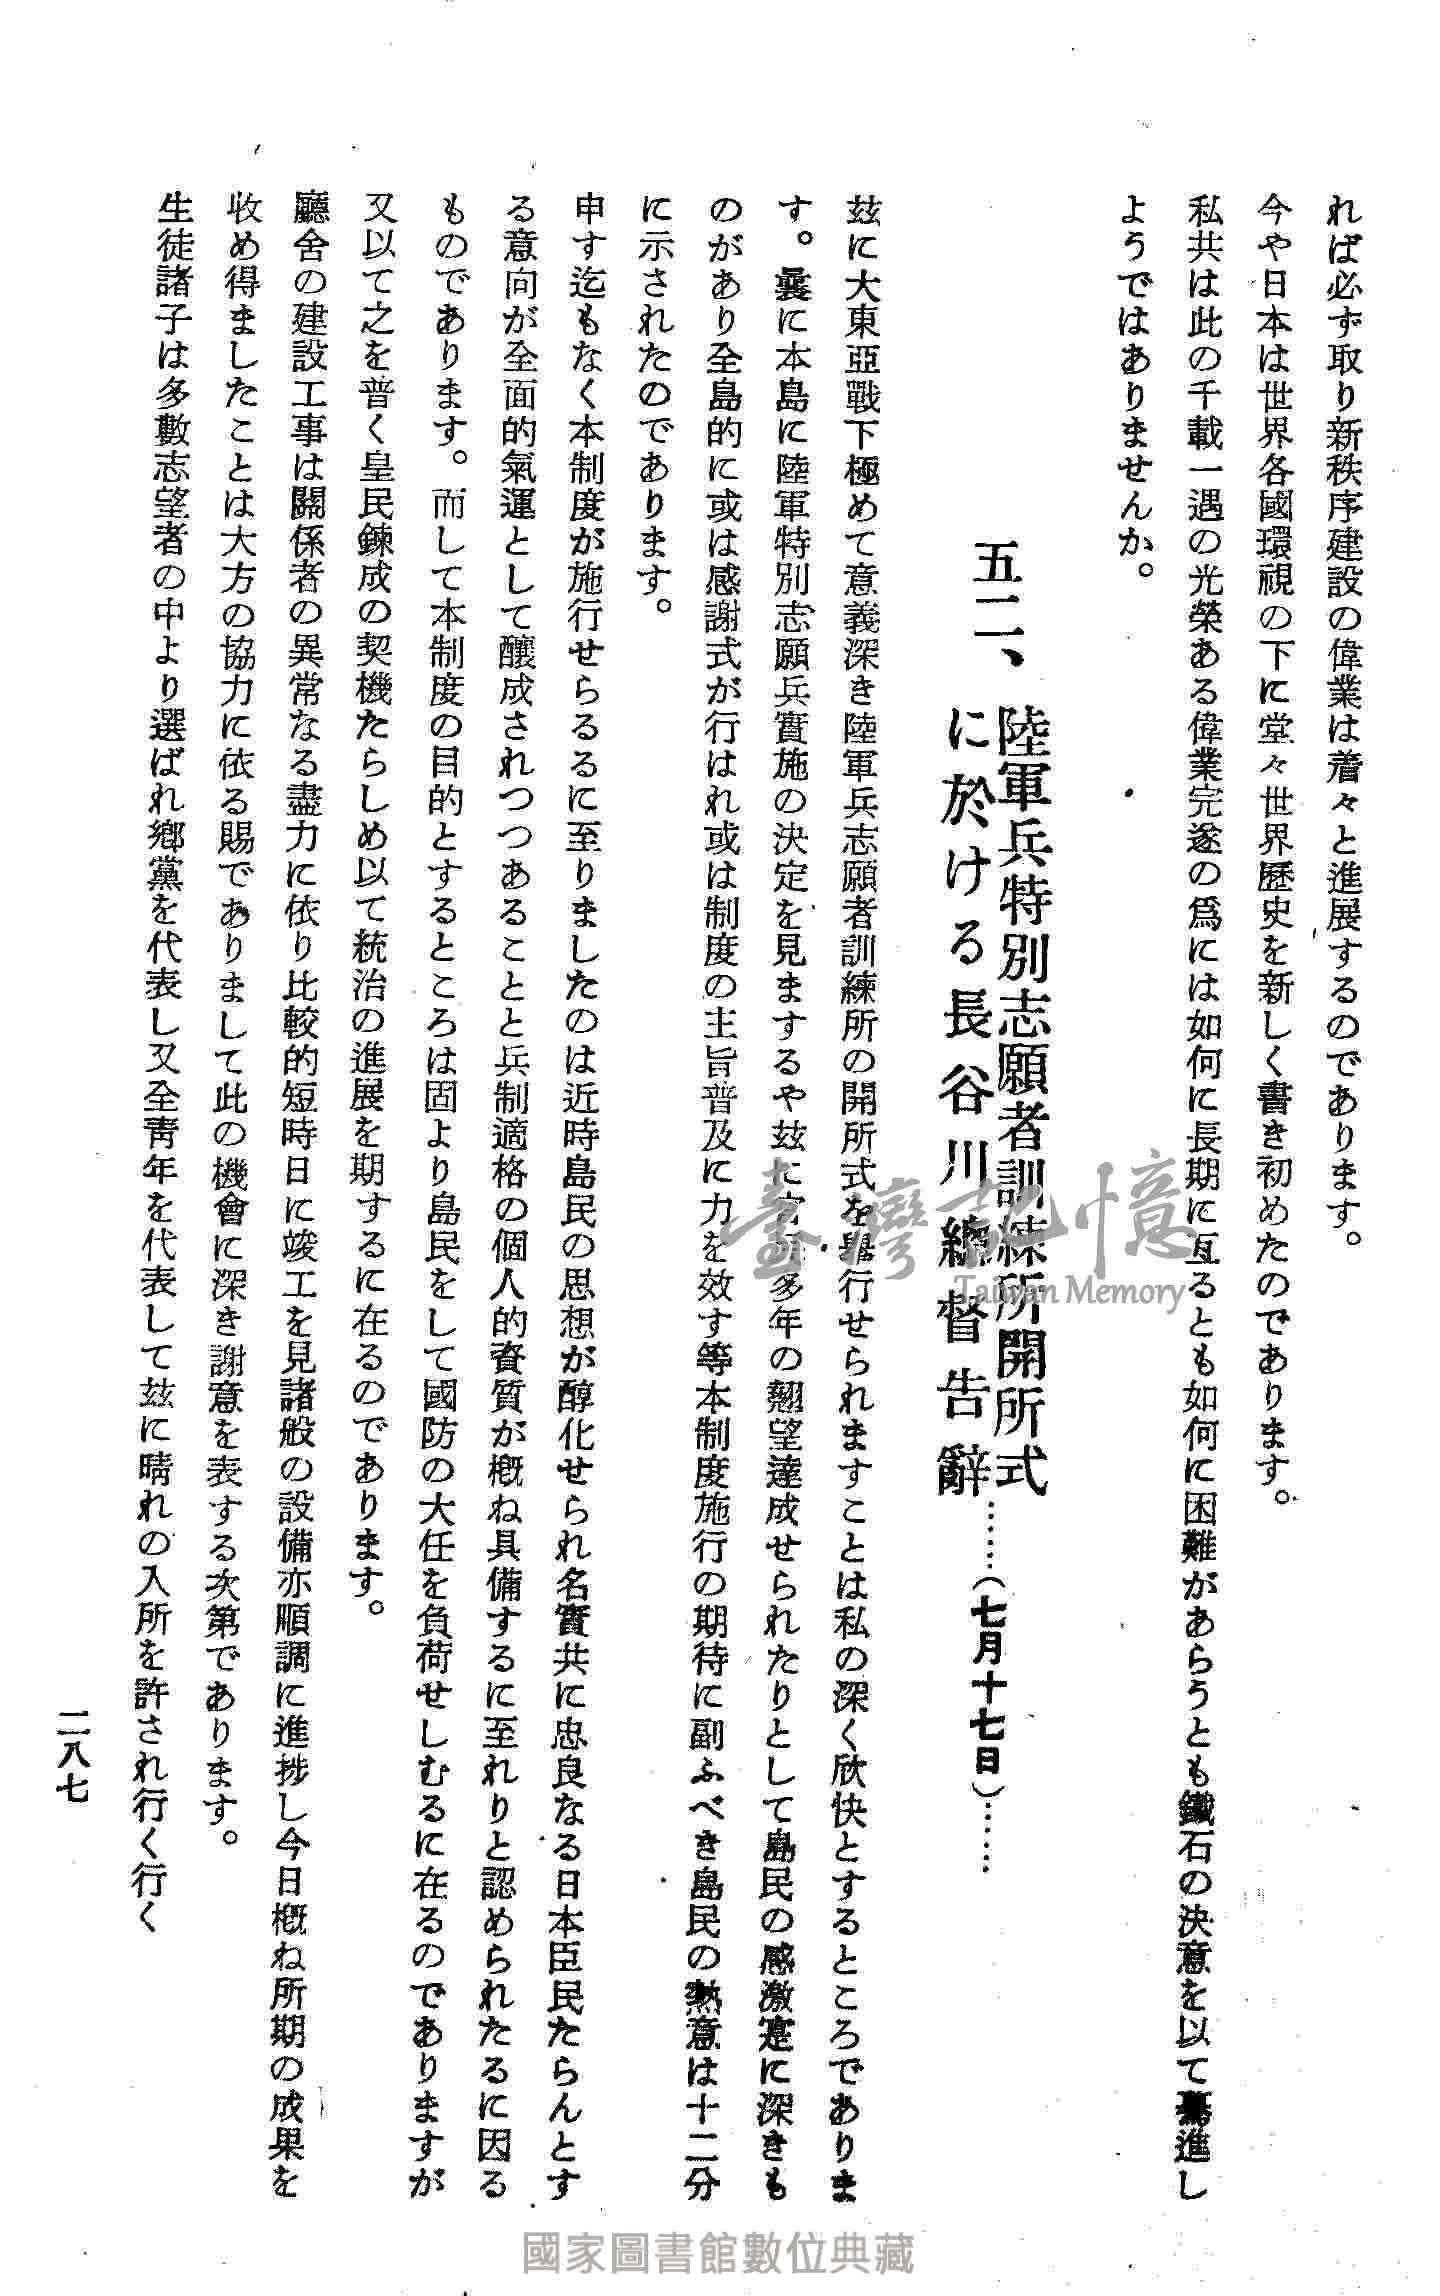 れば必ず取り新秩序建設の偉業は着々と進展するのであります。
今や日本は世界各國環視の下に堂々世界歷史を新しく書き初めたのであります。
私共は此の千載一遇の光榮ある偉業完遂の爲には如何に長期に亙るとも如何に困難があらうとも鐵石の決意を以て驀進し
ようではありませんか。
五二、陸軍兵特別志願者訓練所開所式
に於ける長谷川總督告辭……(七月十七日)……
玆に大東亞戰下極めて意義深き陸軍兵志願者訓練所の開所式を擧行せられますことは私の深く欣快とするところでありま
す。曩に本島に陸軍特別志願兵實施の決定を見まするや玆に官民多年の翹望達成せられたりとして島民の感激寔に深きも
のがあり全島的に或は感謝式が行はれ或は制度の主旨普及に力を效す等本制度施行の期待に副ふべき島民の熱意は十二分
に示されたのであります。
申す迄もなく本制度が施行せらるるに至りましたのは近時島民の思想が醇化せられ名實共に忠良なる日本臣民たらんとす
る意向が全面的氣運として釀成されつつあることと兵制適格の個人的資質が槪ね具備するに至れりと認められたるに因る
ものであります。而して本制度の目的とするところは固より島民をして國防の大任を負荷せしむるに在るのでありますが
又以て之を普く皇民鍊成の契機たらしめ以て統治の進展を期するに在るのであります。
廳舍の建設工事は關係者の異常なる盡力に依り比較的短時日に竣工を見諸般の設備亦順調に進捗し今日槪ね所期の成果を
收め得ましたことは大方の協力に依る賜でありまして此の機會に深き謝意を表する次第であります。
生徒諸子は多數志望者の中より選ばれ鄕黨を代表し又全靑年を代表して玆に晴れの入所を許され行く行く
二八七
臺灣記憶
Taiwan Memory
國家圖書館數位典藏